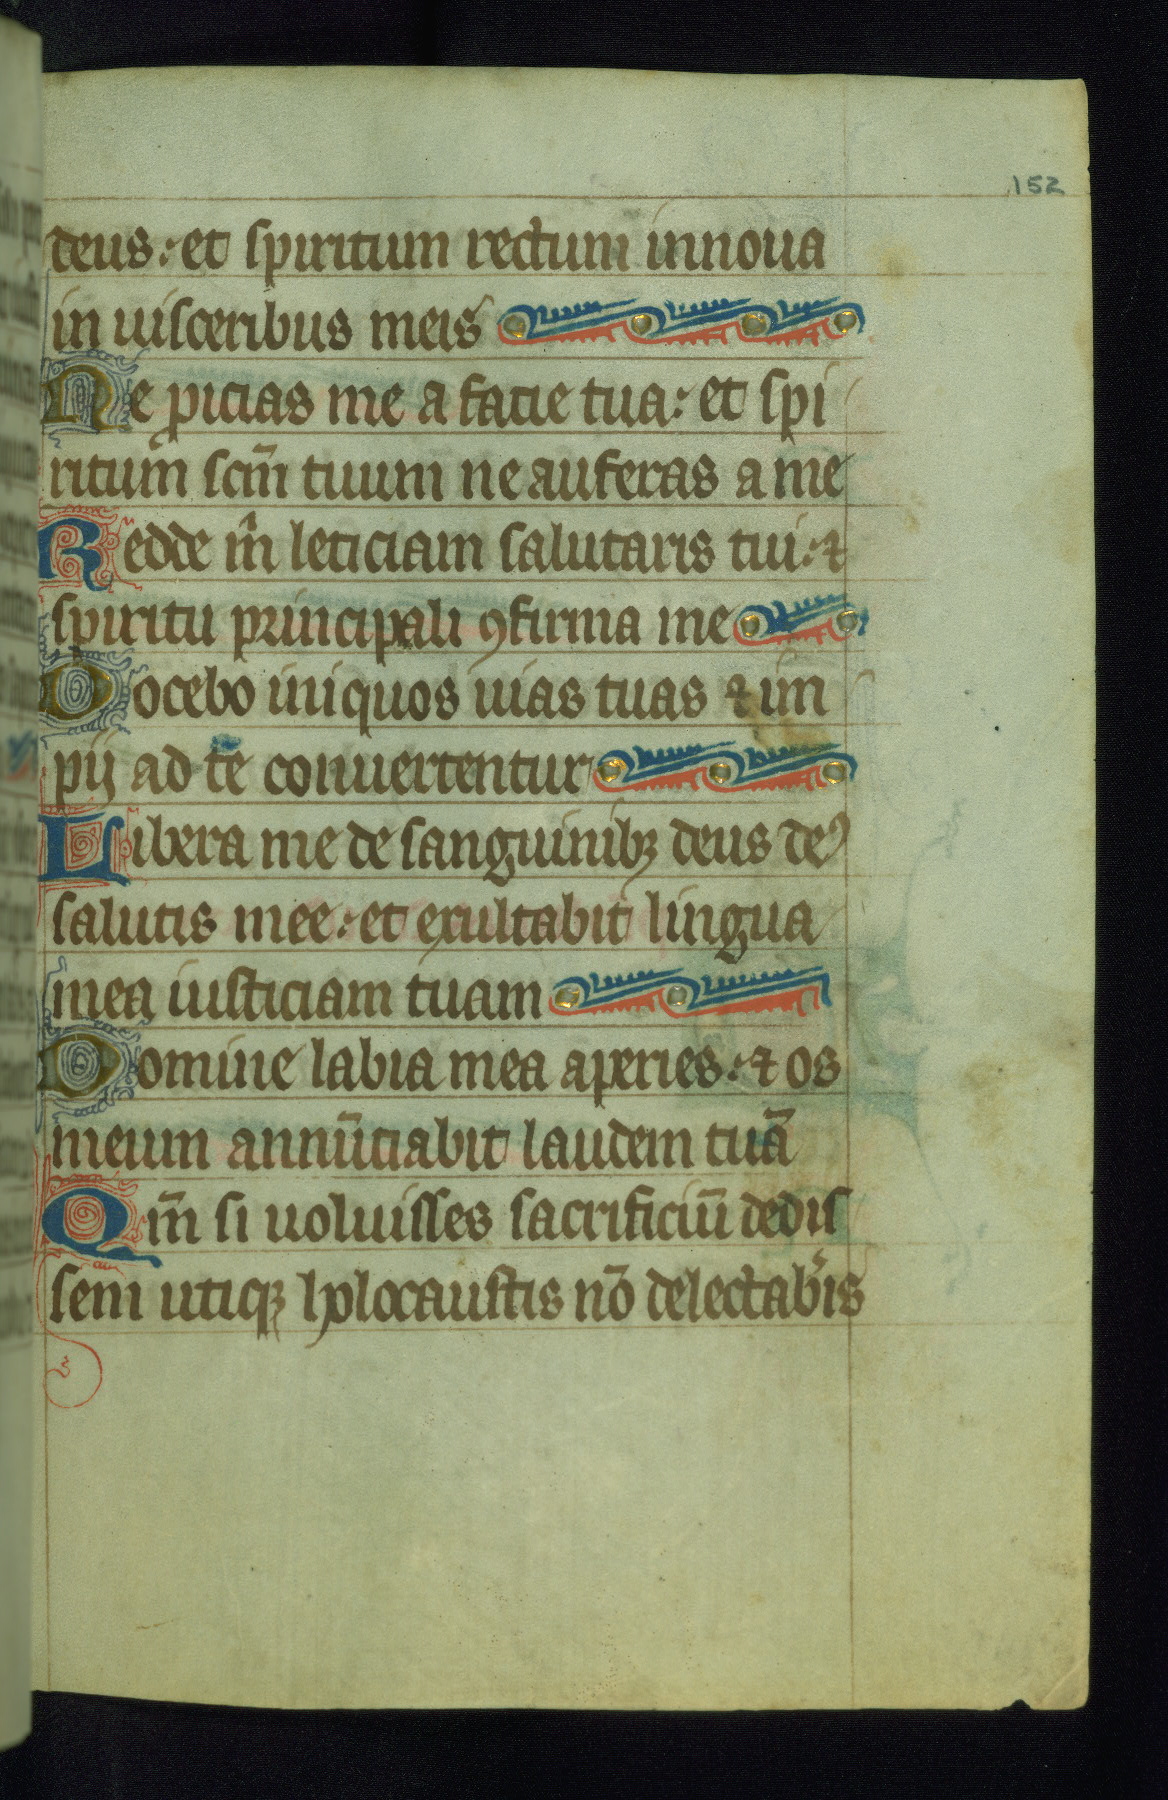 152
deus: et spiritum rectum innoua
in uisceribus meis
Ne picias me a facie tua: et spi
ritum scm̄ tuum ne auferas a me
Redde m̄ leticiam salutaris tui: ⁊
spiritu principali ꝯfirma me
Docebo iniquos uias tuas ⁊ im
pij ad te conuertentur
Libera me de sanguinibꝫ deus deꝰ
salutis mee: et exultabit lingua
mea iusticiam tuam
Domine labia mea aperies: ⁊ os
meum annūciabit laudem tuā
Qm̄ si uoluisses sacrificiū dedis
sem utiqꝫ holocaustis nō delectab'is